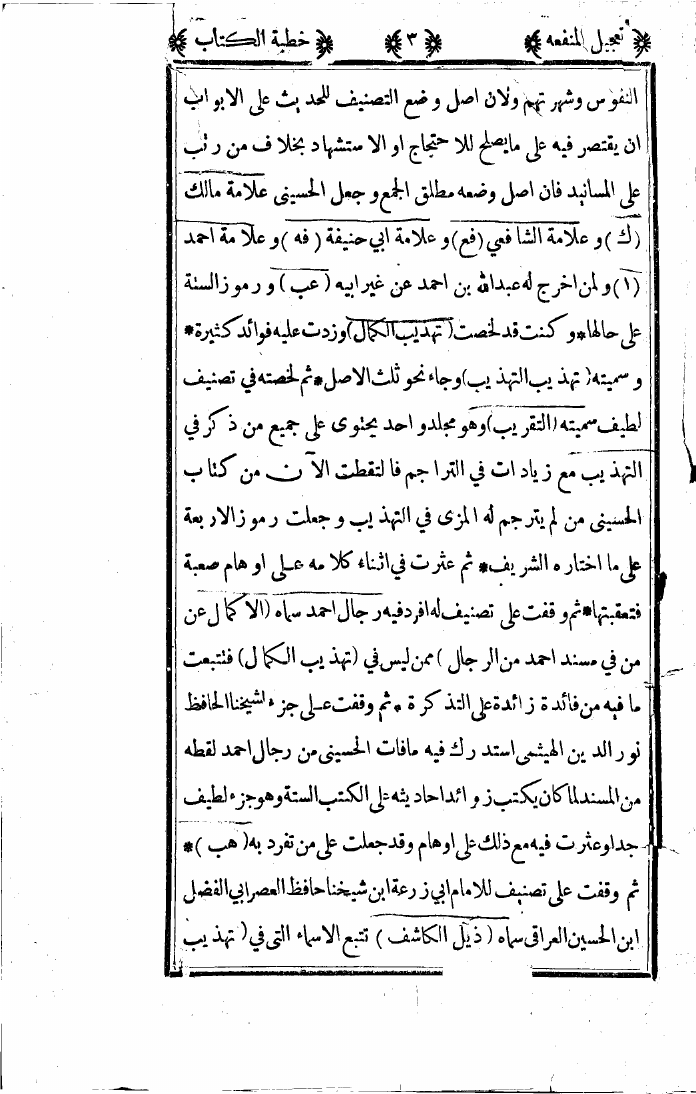 ﴿ تعجيل المنفعه ﴾ ﴿ ٣ ﴾ ﴿ خطبة الكتاب ﴾
النفوس وشهرتهم ولان اصل وضع التصنيف للحديث على الابواب
ان يقتصر فيه على مايصلح للاحتجاج او الاستشهاد بخلاف من رتب
على المسانيد فان اصل وضعه مطلق الجمع وجعل الحسينى علامة مالك
(ك) وعلامة الشافعي (فع) وعلامة ابي حنيفة (فه) وعلامة احمد
(ا) ولمن اخرج له عبدالله بن احمد عن غير ابيه (عب) ورموز الستة
على حالها* وكنت قد لخصت (تهذيب الكمال) وزدت عليه فوائد كثيرة*
وسميته (تهذيب التهذيب) وجاء نحو ثلث الاصل* ثم لخصته في تصنيف
لطيف سميته (التقريب) وهو مجلد واحد يحتوى على جميع من ذكر في
التهذيب مع زيادات في التراجم فالتقطت الآن من كتاب
الحسينى من لم يترجم له المزى في التهذيب وجعلت رموز الاربعة
على ما اختاره الشريف* ثم عثرت في اثناء كلامه على اوهام صعبة
فتعقبتها* ثم وقفت على تصنيف له افرد فيه رجال احمد سماه (الاكمال عن
من في مسند احمد من الرجال) ممن ليس في (تهذيب الكمال) فتتبعت
ما فيه من فائدة زائدة على التذكرة* ثم وقفت على جزء لشيخنا الحافظ
نور الدين الهيثمى استدرك فيه مافات الحسينى من رجال احمد لقطه
من المسند لما كان يكتب زوائد احاديثه على الكتب الستة وهو جزء لطيف
جدا وعثرت فيه مع ذلك على اوهام وقد جعلت على من تفرد به (هب)*
ثم وقفت على تصنيف للامام ابي زرعة ابن شيخنا حافظ العصر ابي الفضل
ابن الحسين العراقى سماه (ذيل الكاشف) تتبع الاسماء التى في (تهذيب